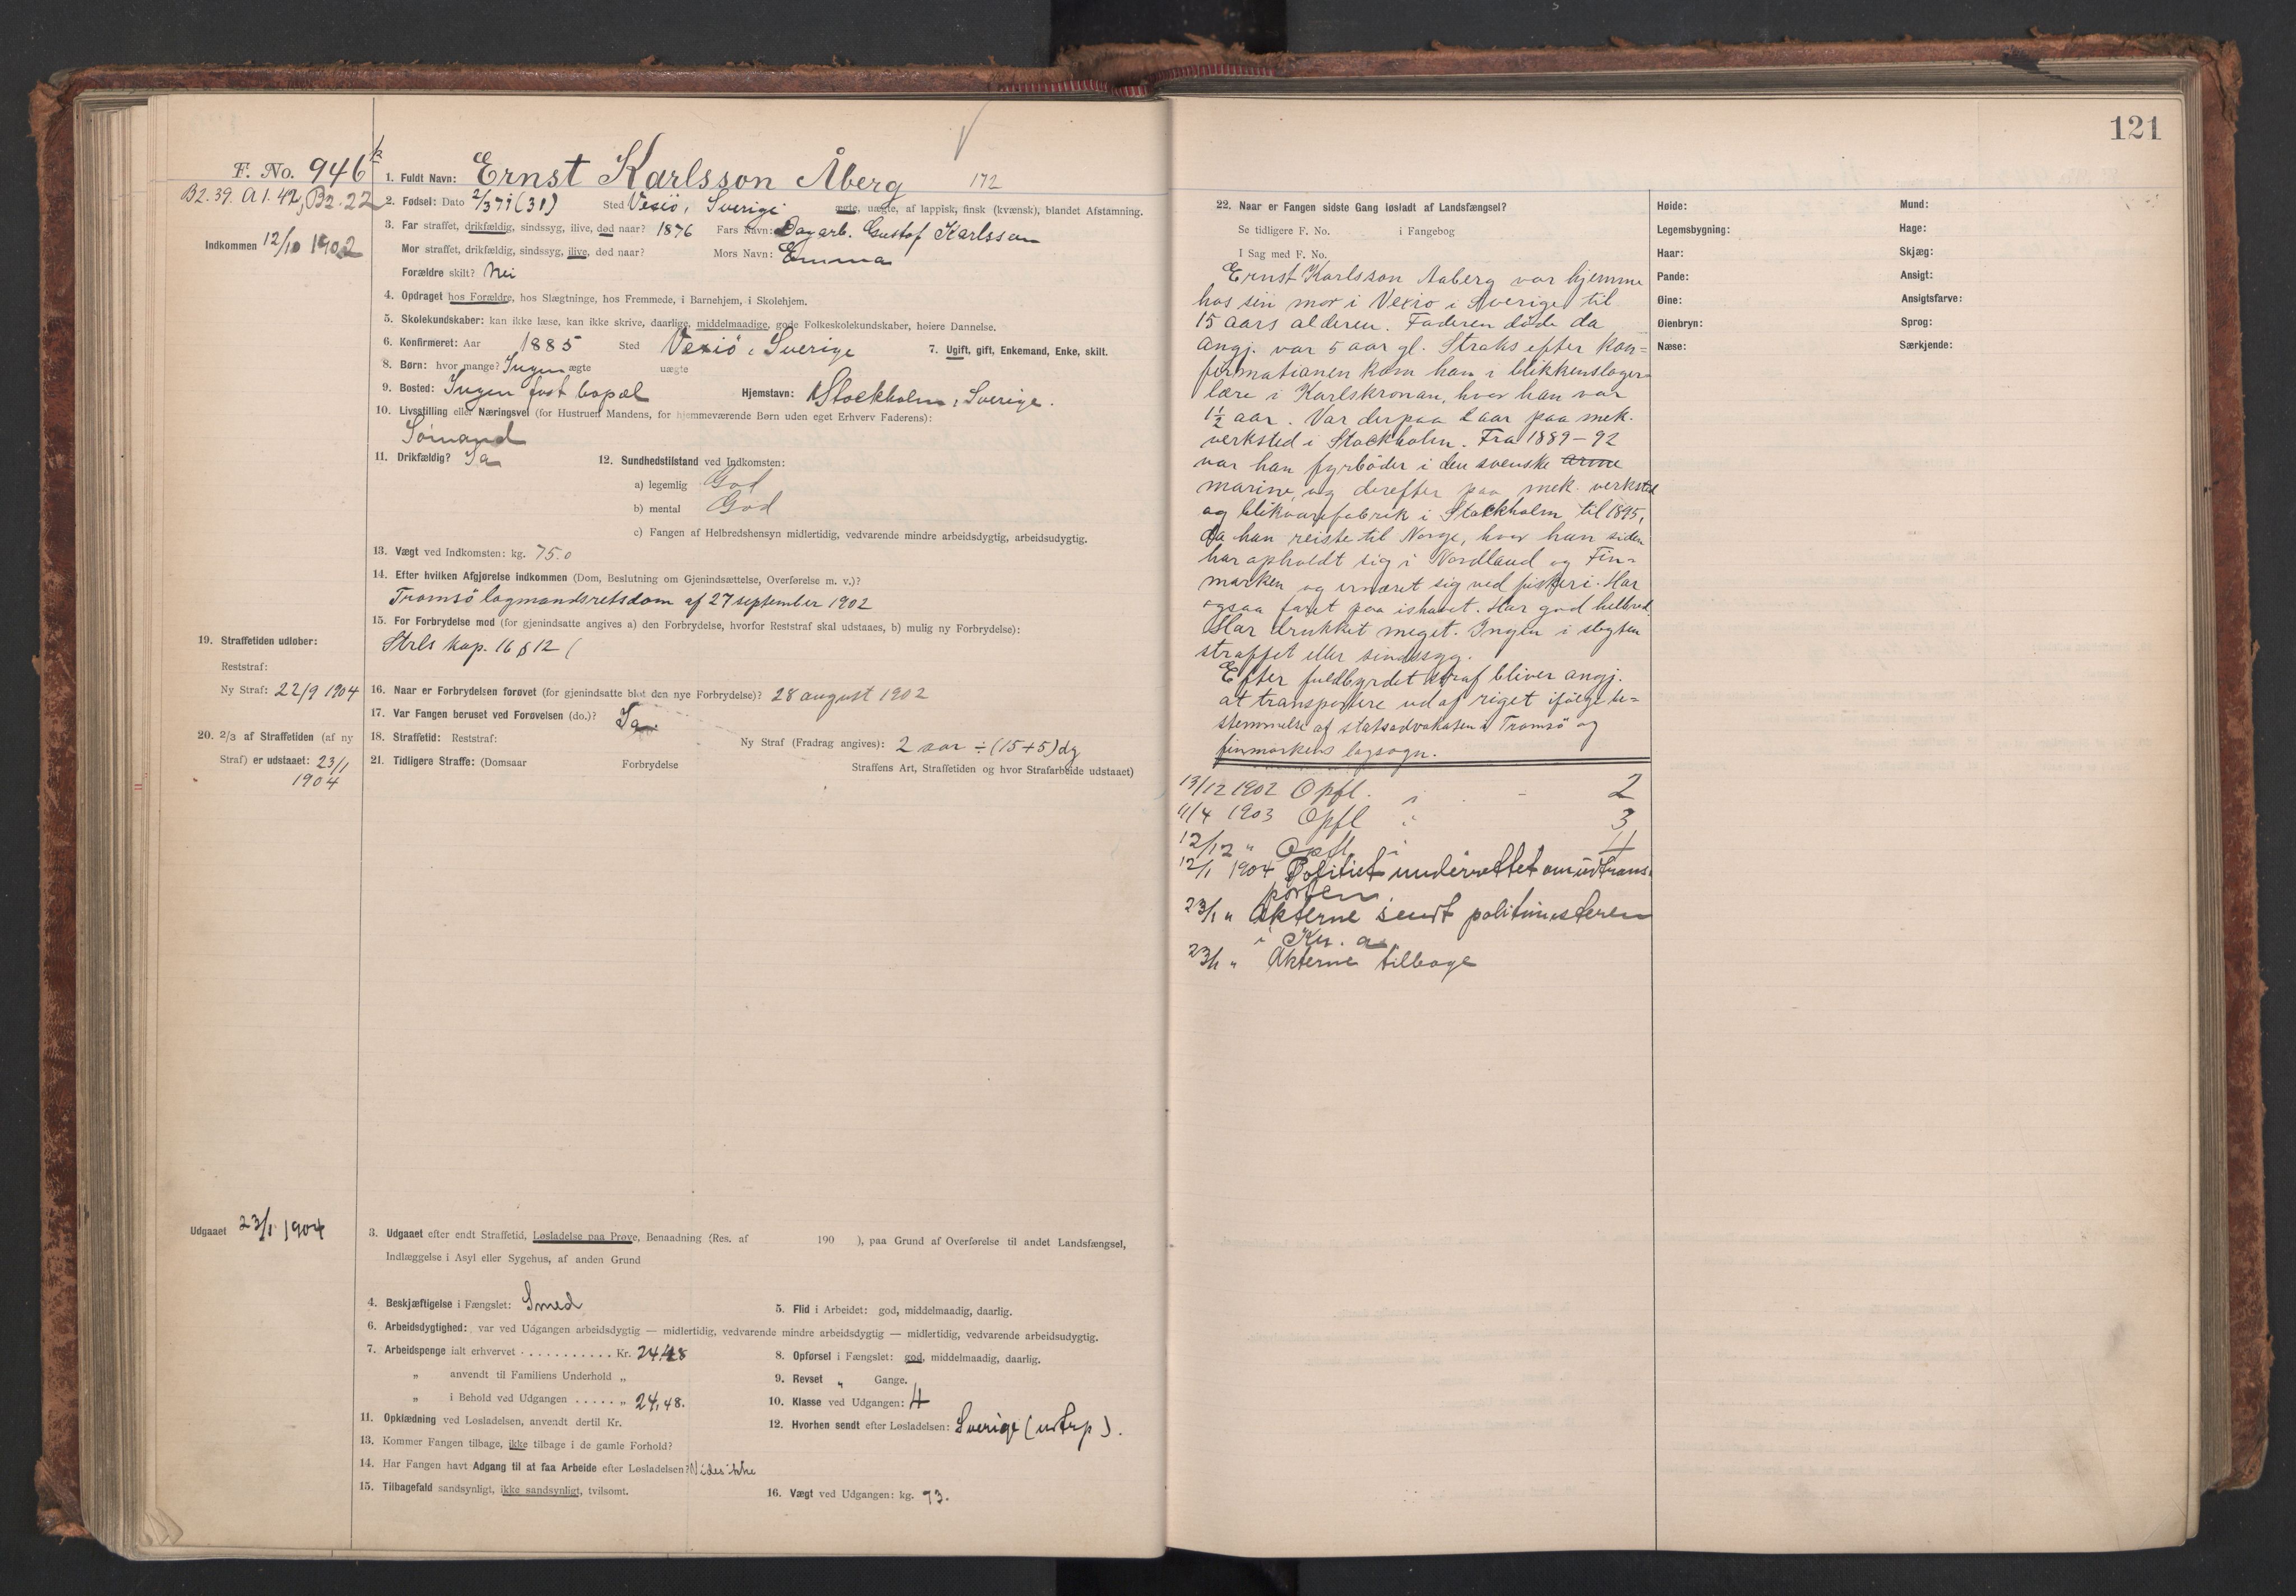 121
F. No. 946 k
B2. 39. A1. 42, B2. 22
Indkommen 12/10 1902
1. Fuldt Navn: Ernst Karlsson Åberg 172
2. Fødsel: Dato 2/3 71 (31) Sted Vexiö, Sverige ægte, uægte, af lappisk, finsk (kvænsk), blandet Afstamning.
3. Far straffet, drikfældig, sindssyg, ilive, død naar? 1876 Fars Navn: Dagarb. Gustof Karlsson
Mor straffet, drikfældig, sindssyg, ilive, død naar? Mors Navn: Emma
Forældre skilt? Nei
4. Opdraget hos Forældre, hos Slægtninge, hos Fremmede, i Barnehjem, i Skolehjem.
5. Skolekundskaber: kan ikke læse, kan ikke skrive, daarlige, middelmaadige, gode Folkeskolekundskaber, høiere Dannelse.
6. Konfirmeret: Aar 1885 Sted Vexiö, Sverige 7. Ugift, gift, Enkemand, Enke, skilt.
8. Børn: hvor mange? Ingen ægte uægte
9. Bosted: Ingen fast bopæl Hjemstavn: Stockholm, Sverige.
10. Livsstilling eller Næringsvei (for Hustruer Mandens, for hjemmeværende Børn uden eget Erhverv Faderens):
Sømand
11. Drikfældig? Ja 12. Sundhedstilstand ved Indkomsten:
a) legemlig God
b) mental God
c) Fangen af Helbredshensyn midlertidig, vedvarende mindre arbeidsdygtig, arbeidsudygtig.
13. Vægt ved Indkomsten: kg. 75.0
14. Efter hvilken Afgjørelse indkommen (Dom, Beslutning om Gjenindsættelse, Overførelse m. v.)?
Tromsö lagmandsretsdom af 27 september 1902
15. For Forbrydelse mod (for gjenindsatte angives a) den Forbrydelse, hvorfor Reststraf skal udstaaes, b) mulig ny Forbrydelse):
Strls kap. 16 § 12 (
19. Straffetiden udløber:
Reststraf:
Ny Straf: 22/9 1904
16. Naar er Forbrydelsen forøvet (for gjenindsatte blot den nye Forbrydelse)? 28 august 1902
17. Var Fangen beruset ved Forøvelsen (do.)? Ja
20. 2/3 af Straffetiden (af ny
Straf) er udstaaet: 23/1
1904
18. Straffetid: Reststraf: Ny Straf (Fradrag angives): 2 aar ÷ (15+5) dg
21. Tidligere Straffe: (Domsaar Forbrydelse Straffens Art, Straffetiden og hvor Strafarbeide udstaaet)
Udgaaet 23/1 1904
3. Udgaaet efter endt Straffetid, Løsladelse paa Prøve, Benaadning (Res. af 190 ), paa Grund af Overførelse til andet Landsfængsel,
Indlæggelse i Asyl eller Sygehus, af anden Grund
4. Beskjæftigelse i Fængslet: Smed 5. Flid i Arbeidet: god, middelmaadig, daarlig.
6. Arbeidsdygtighed: var ved Udgangen arbeidsdygtig — midlertidig, vedvarende mindre arbeidsdygtig — midlertidig, vedvarende arbeidsudygtig.
7. Arbeidspenge ialt erhvervet . . . . . . . . . . . Kr. 24.48 8. Opførsel i Fængslet: god, middelmaadig, daarlig.
„ anvendt til Familiens Underhold „ 9. Revset „ Gange.
„ i Behold ved Udgangen . . . . . „ 24,48. 10. Klasse ved Udgangen: 4
11. Opklædning ved Løsladelsen, anvendt dertil Kr. 12. Hvorhen sendt efter Løsladelsen: Sverige (udtrp).
13. Kommer Fangen tilbage, ikke tilbage i de gamle Forhold?
14. Har Fangen havt Adgang til at faa Arbeide efter Løsladelsen? Vides ikke
15. Tilbagefald sandsynligt, ikke sandsynligt, tvilsomt. 16. Vægt ved Udgangen: kg. 73.
22. Naar er Fangen sidste Gang løsladt af Landsfængsel?
Se tidligere F. No. i Fangebog
I Sag med F. No.
Ernst Karlsson Aaberg var hjemme
hos sin mor i Vexio i Sverige til
15 aars alderen. Faderen döde da
angj. var 5 aar gl. Straks efter kon=
firmationen kom han i blikkenslager
lære i Karlskronan, hvor han var
1½ aar. Var derpaa 2 aar paa mek.
verksted i Stockholm. Fra 1889-92
var han fyrböder i den svenske arme
marine, og derefter paa mek. verksted
og blikvarefabrik i Stockholm til 1895,
da han reiste til Norge, hvor han siden
har opholdt sig i Nordland og Fin=
marken og ernæret sig ved fiskeri. Har
ogsaa faret paa ishavet. Har god helbred.
Har drukket meget. Ingen i slegten
straffet eller sindssyg.
Efter fuldbyrdet straf bliver angj.
at transportere ud af riget ifölge be=
stemmelse af statsadvokaten i Tromsö og
finmarkens lagsogn.
13/12 1902 Opfl. i - 2
11/4 1903 Opfl i 3
12/12 „ Opfl. i 4
12/1 1904 Politiet underrettet om udtrans-
porten
23/1 „ Akterne sendt politimesteren
i Kr. a.
23/1 „ Akterne tilbage
Høide: Mund:
Legemsbygning: Hage:
Haar: Skjæg:
Pande: Ansigt:
Øine: Ansigtsfarve:
Øienbryn: Sprog:
Næse: Særkjende: